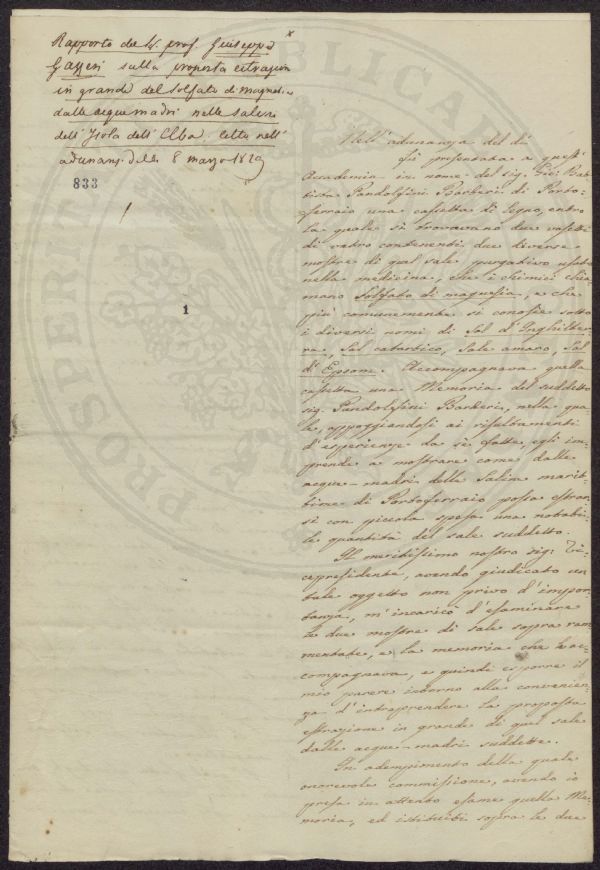 Rapporto del S. prof. Giuseppe
Gazzeri sulla proposta estrazion
in grande del solfato di magnesia
dalle acque madri nelle saline
dell'Isola dell'Elba. letto nell'
adunanza delli 8 marzo 1829
833
1
Nell'adunanza del dì
fù presentata a quest'
Accademia in nome del sig. Gio: Bat
tista Pandolfini Barberi di Porto-
ferraio una cassetta di legno, entro
la quale si trovavano due vasetti
di vetro contenenti due diverse
mostre di quel sale purgativo usato
nella medicina, che i chimici chia-
mano Solfato di magnesia, e che
più comunemente si conosce sotto
i diversi nomi di Sal d'Inghilter-
ra, Sal catartico, Sale amaro, Sal
d'Epsom. Accompagnava quella
cassetta una Memoria del suddetto
sig. Pandolfini Barberi, nella qua-
le, appoggiandosi ai risultamenti
d'esperienze da sè fatte, egli im-
prende a mostrare come dalle
acque-madri delle Saline marit-
time di Portoferraio possa estrar-
si con piccola spesa una notabi-
le quantità del sale suddetto.
Il meritissimo nostro sig. Vi-
cepresidente, avendo giudicato un
tale oggetto non privo d'impor-
tanza, m'incaricò d'esaminare
le due mostre di sale sopra ram-
mentate, e la memoria che le ac-
compagnava, e quindi esporre il
mio parere intorno alla convenien-
za d'intraprendere la proposta
estrazione in grande di quel sale
dalle acque-madri suddette.
In adempimento della quale
onorevole commissione, avendo io
presa in attento esame quella Me-
moria, ed istituiti sopra le due
PROSPERITÀ PUBLICA